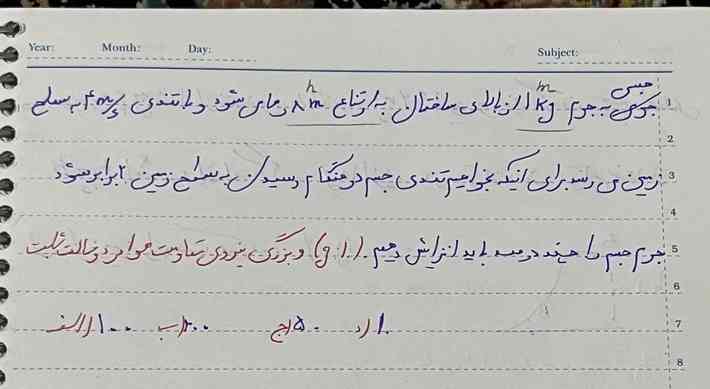 Year: Month: Day: Subject:
جسمی به جرم 1 kg از بالای ساختمان به ارتفاع 8 m رها می شود و با تندی 4 m/s به سطح
زمین می رسد برای اینکه بخواهیم تندی جسم در هنگام رسیدن به سطح زمین 2 برابر شود
جرم جسم را چند درصد باید افزایش دهیم. (g و بزرگی نیروی مقاومت هوا در دو حالت ثابت
الف) 100 ب) 200 ج) 50 د) 10